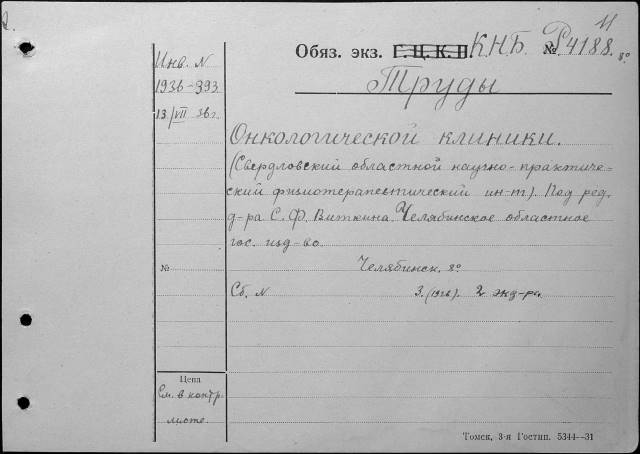 2.
11
Инв. N
1936-393
13/VII 36г.
Обяз. экз. Г.Ц.К.П. К.Н.Б. № Р4188. 8º
Труды
Онкологической клиники.
(Свердловский областной научно-практиче-
ский физиотерапевтический ин-т). Под ред.
д-ра С. Ф. Виткина. Челябинское областное
гос. изд-во.
№
Челябинск. 8º
Сб. N 3. (1936). 2 экз-ра.
Цена
См. в контр.
листе.
Томск, 3-я Гостип. 5344—31